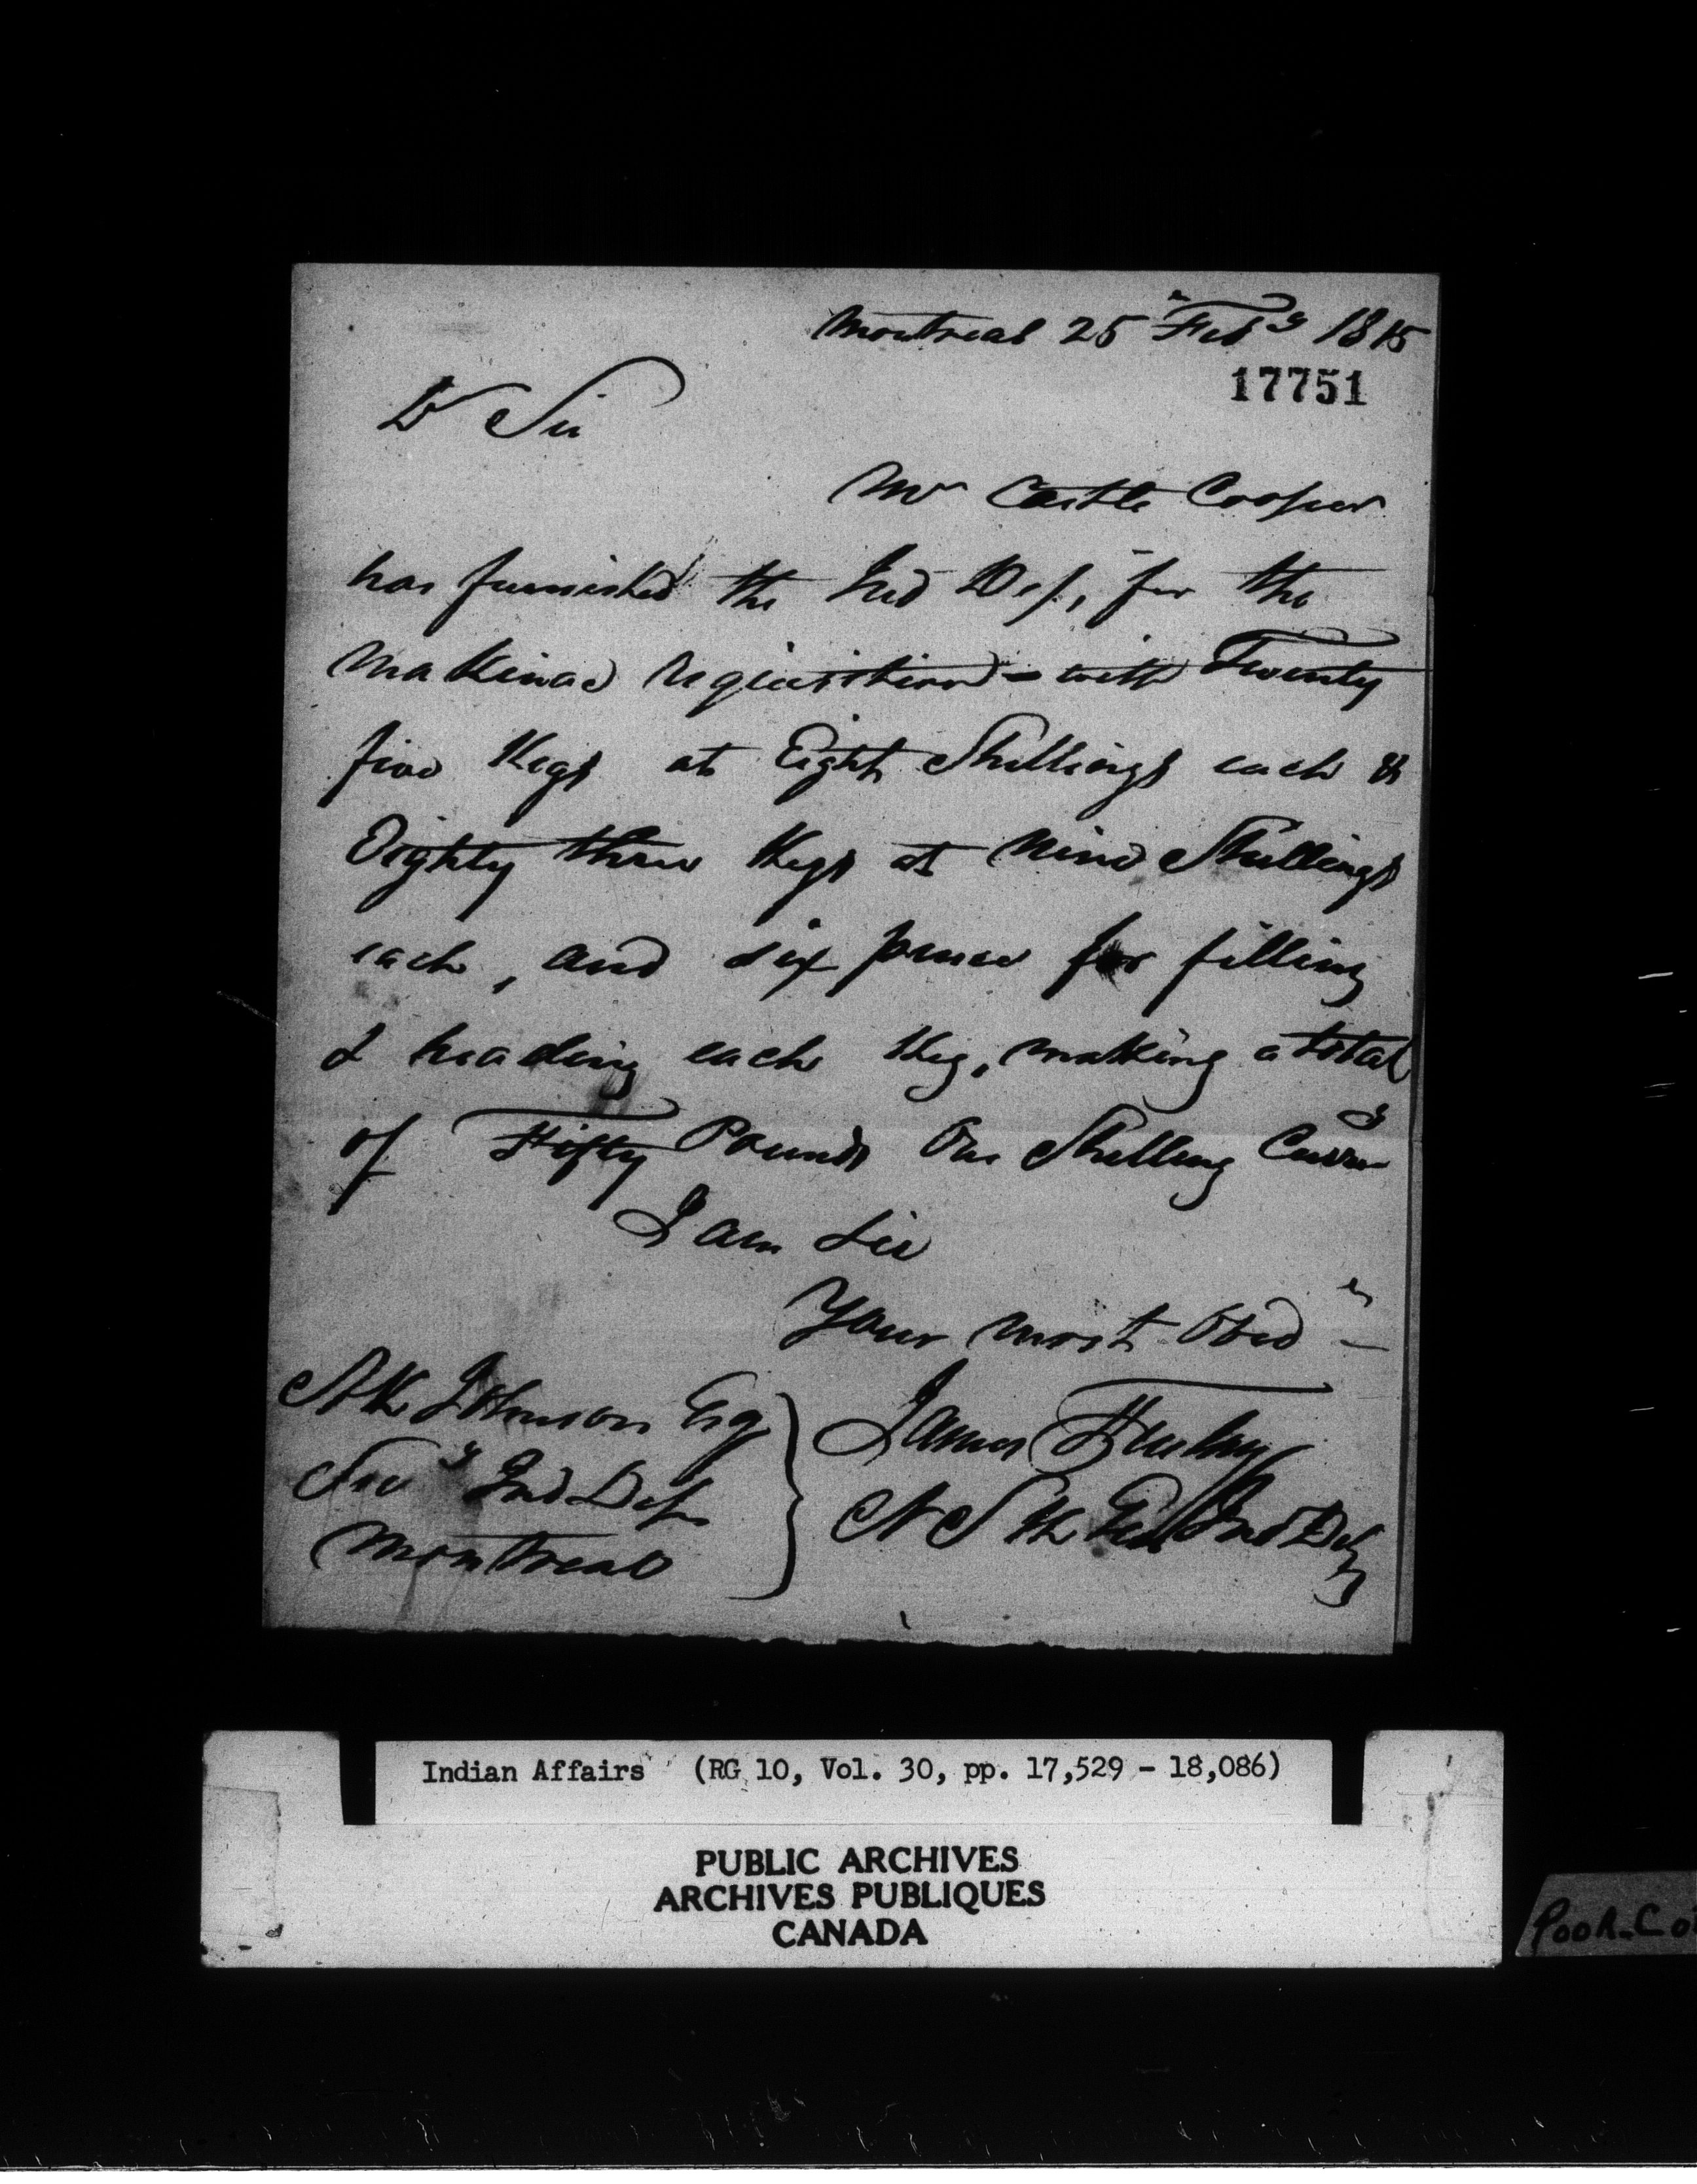 Montreal 25 Feby 1815
17751
Dr Sir
Mr Castle Cooper
has furnished the Ind Dep, for the
Makinac requisition - with Twenty
five Kegs at Eight Shillings each &
Eighty three Kegs at Nine Shillings
each, and six pence for filling
& heading each Keg, making a total
of Fifty Pounds One Shilling Curry
I am Sir
Your most Obed
Esq
Secy Ind Dep
Montreal
James
N S K Ind Dep
Indian Affairs (RG 10, Vol. 30, pp. 17,529 - 18,086)
PUBLIC ARCHIVES
ARCHIVES PUBLIQUES
CANADA